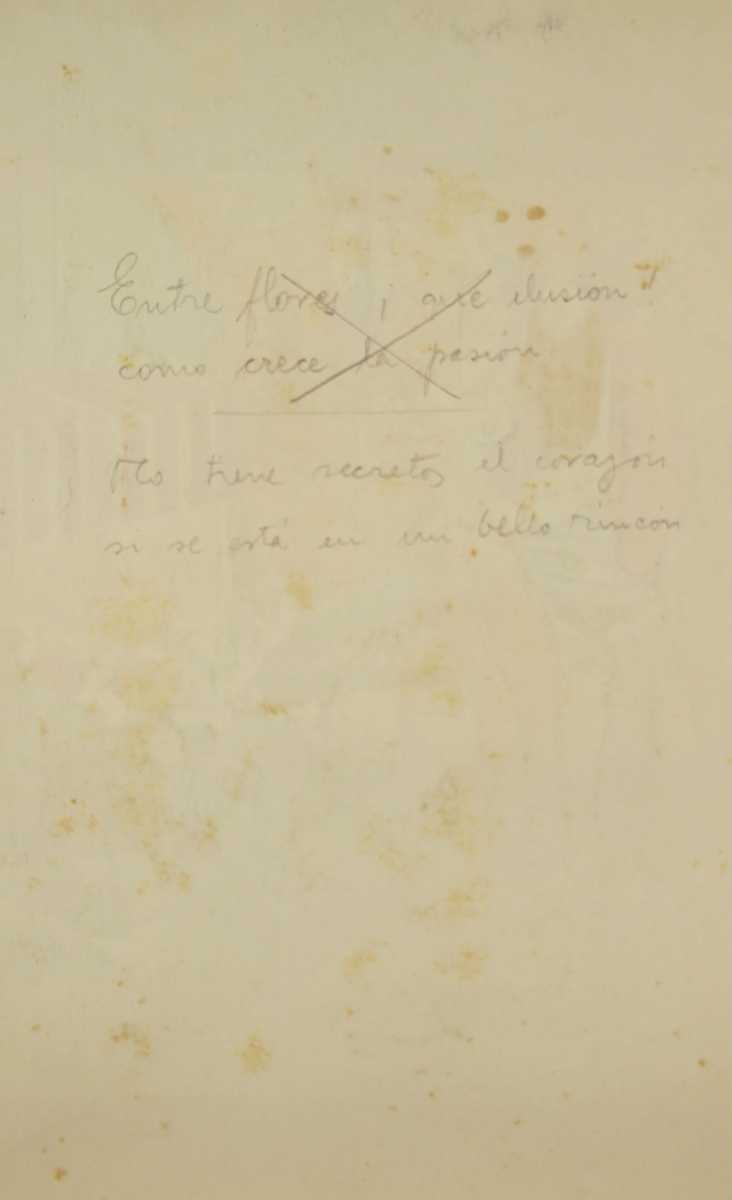 Entre flores ¡ que ilusión !
como crece la pasión
No tiene secretos el corazón
si se está en un bello rincón